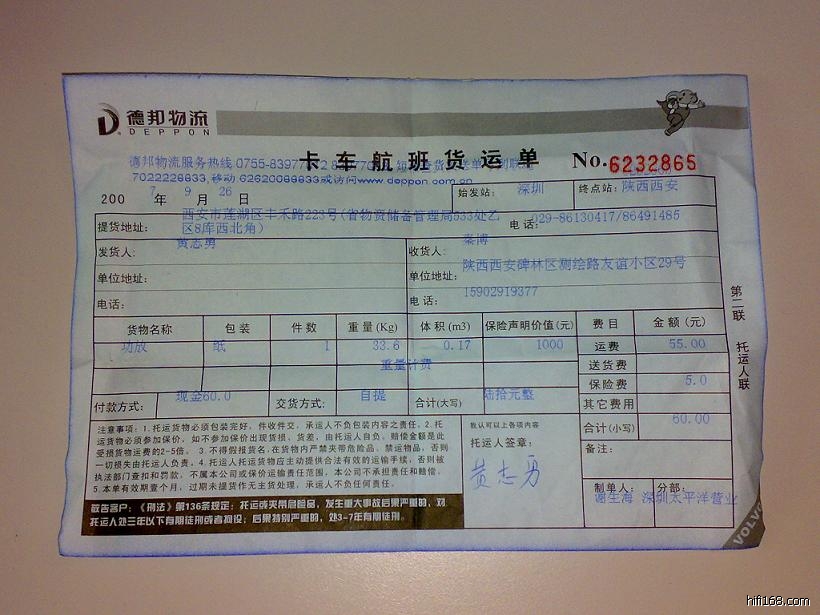 德邦物流
DEPPON
卡车航班货运单
No.6232865
德邦物流服务热线 0755-8397
7022228833,移动 62620088833或访问www.deppon.com.cn
2007年9月26日
始发站: 深圳
终点站: 陕西西安
提货地址: 西安市莲湖区丰禾路223号(省物资储备管理局533处乙区8库西北角)
电话: 029-86130417/86491485
发货人: 黄志勇
收货人: 秦博
单位地址:
单位地址: 陕西西安碑林区测绘路友谊小区29号
电话:
电话: 15902919377
货物名称 包装 件数 重量(Kg) 体积(m3) 保险声明价值(元) 费目 金额(元)
功放 纸 1 33.6 0.17 1000 运费 55.00
重量计费
送货费
保险费 5.0
付款方式: 现金60.0 交货方式: 自提 合计(大写) 陆拾元整
其它费用
合计(小写) 60.00
注意事项:1.托运货物必须包装完好,件收件交,承运人不负包装内容之责任。2.托
运货物必须参加保价,如不参加保价出现货损、货差,由托运人自负,赔偿金额是此
受损货物运费的2-5倍。3.不得假报货名,在货物内严禁夹带危险品、禁运物品,否则
一切损失由托运人负责。4.托运人托运货物应主动提供合法有效的运输手续,否则被
执法部门查扣和罚款,不属本公司或保价运输责任范围,本公司不承担责任和赔偿。
5.本单有效期壹个月,过期未提货作无主货处理,承运人不负任何责任。
敬告客户:《刑法》第136条规定:托运或夹带危险品,发生重大事故后果严重的,对
托运人处三年以下有期徒刑或者拘役;后果特别严重的,处3-7年有期徒刑。
我认可以上各项内容
托运人签章:
黄志勇
备注:
制单人: 谢生海
分部: 深圳太平洋营业
第二联 托运人联
VOLVO
hifi168.com